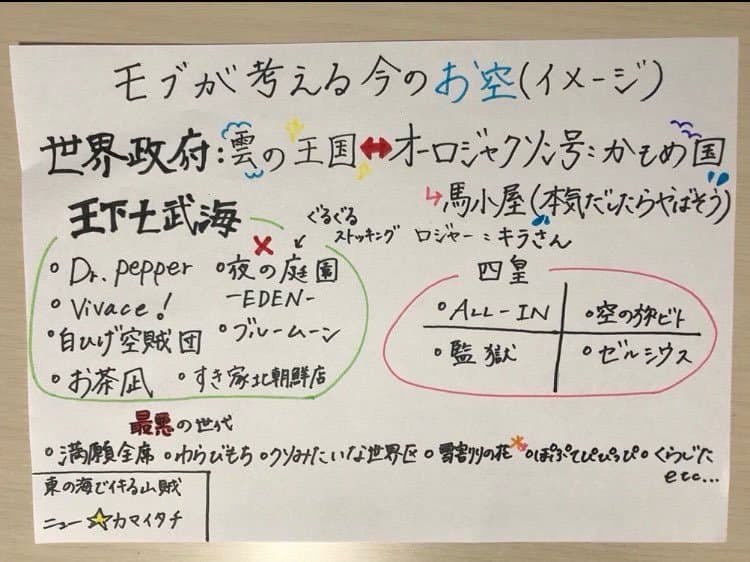 モブが考える今のお空(イメージ)
世界政府:雲の王国↔オーロジャクソン号:かもめ国
↳馬小屋(本気だしたらやばそう)
王下七武海
ぐるぐる
ストッキング
ロジャー:キラさん
•Dr.pepper
•Vivace!
•白ひげ空賊団
•お茶凪
•夜の庭園
-EDEN-
•ブルームーン
•すき家北朝鮮店
四皇
•ALL-IN
•空の旅ビト
•監獄
•ゼルシウス
最悪の世代
•満願全席 •わらびもち •クソみたいな世界区 •雪割りの花 •ぽぷてぴぴっぴ •くらじた
etc...
東の海でイキる山賊
ニュー☆カマイタチ